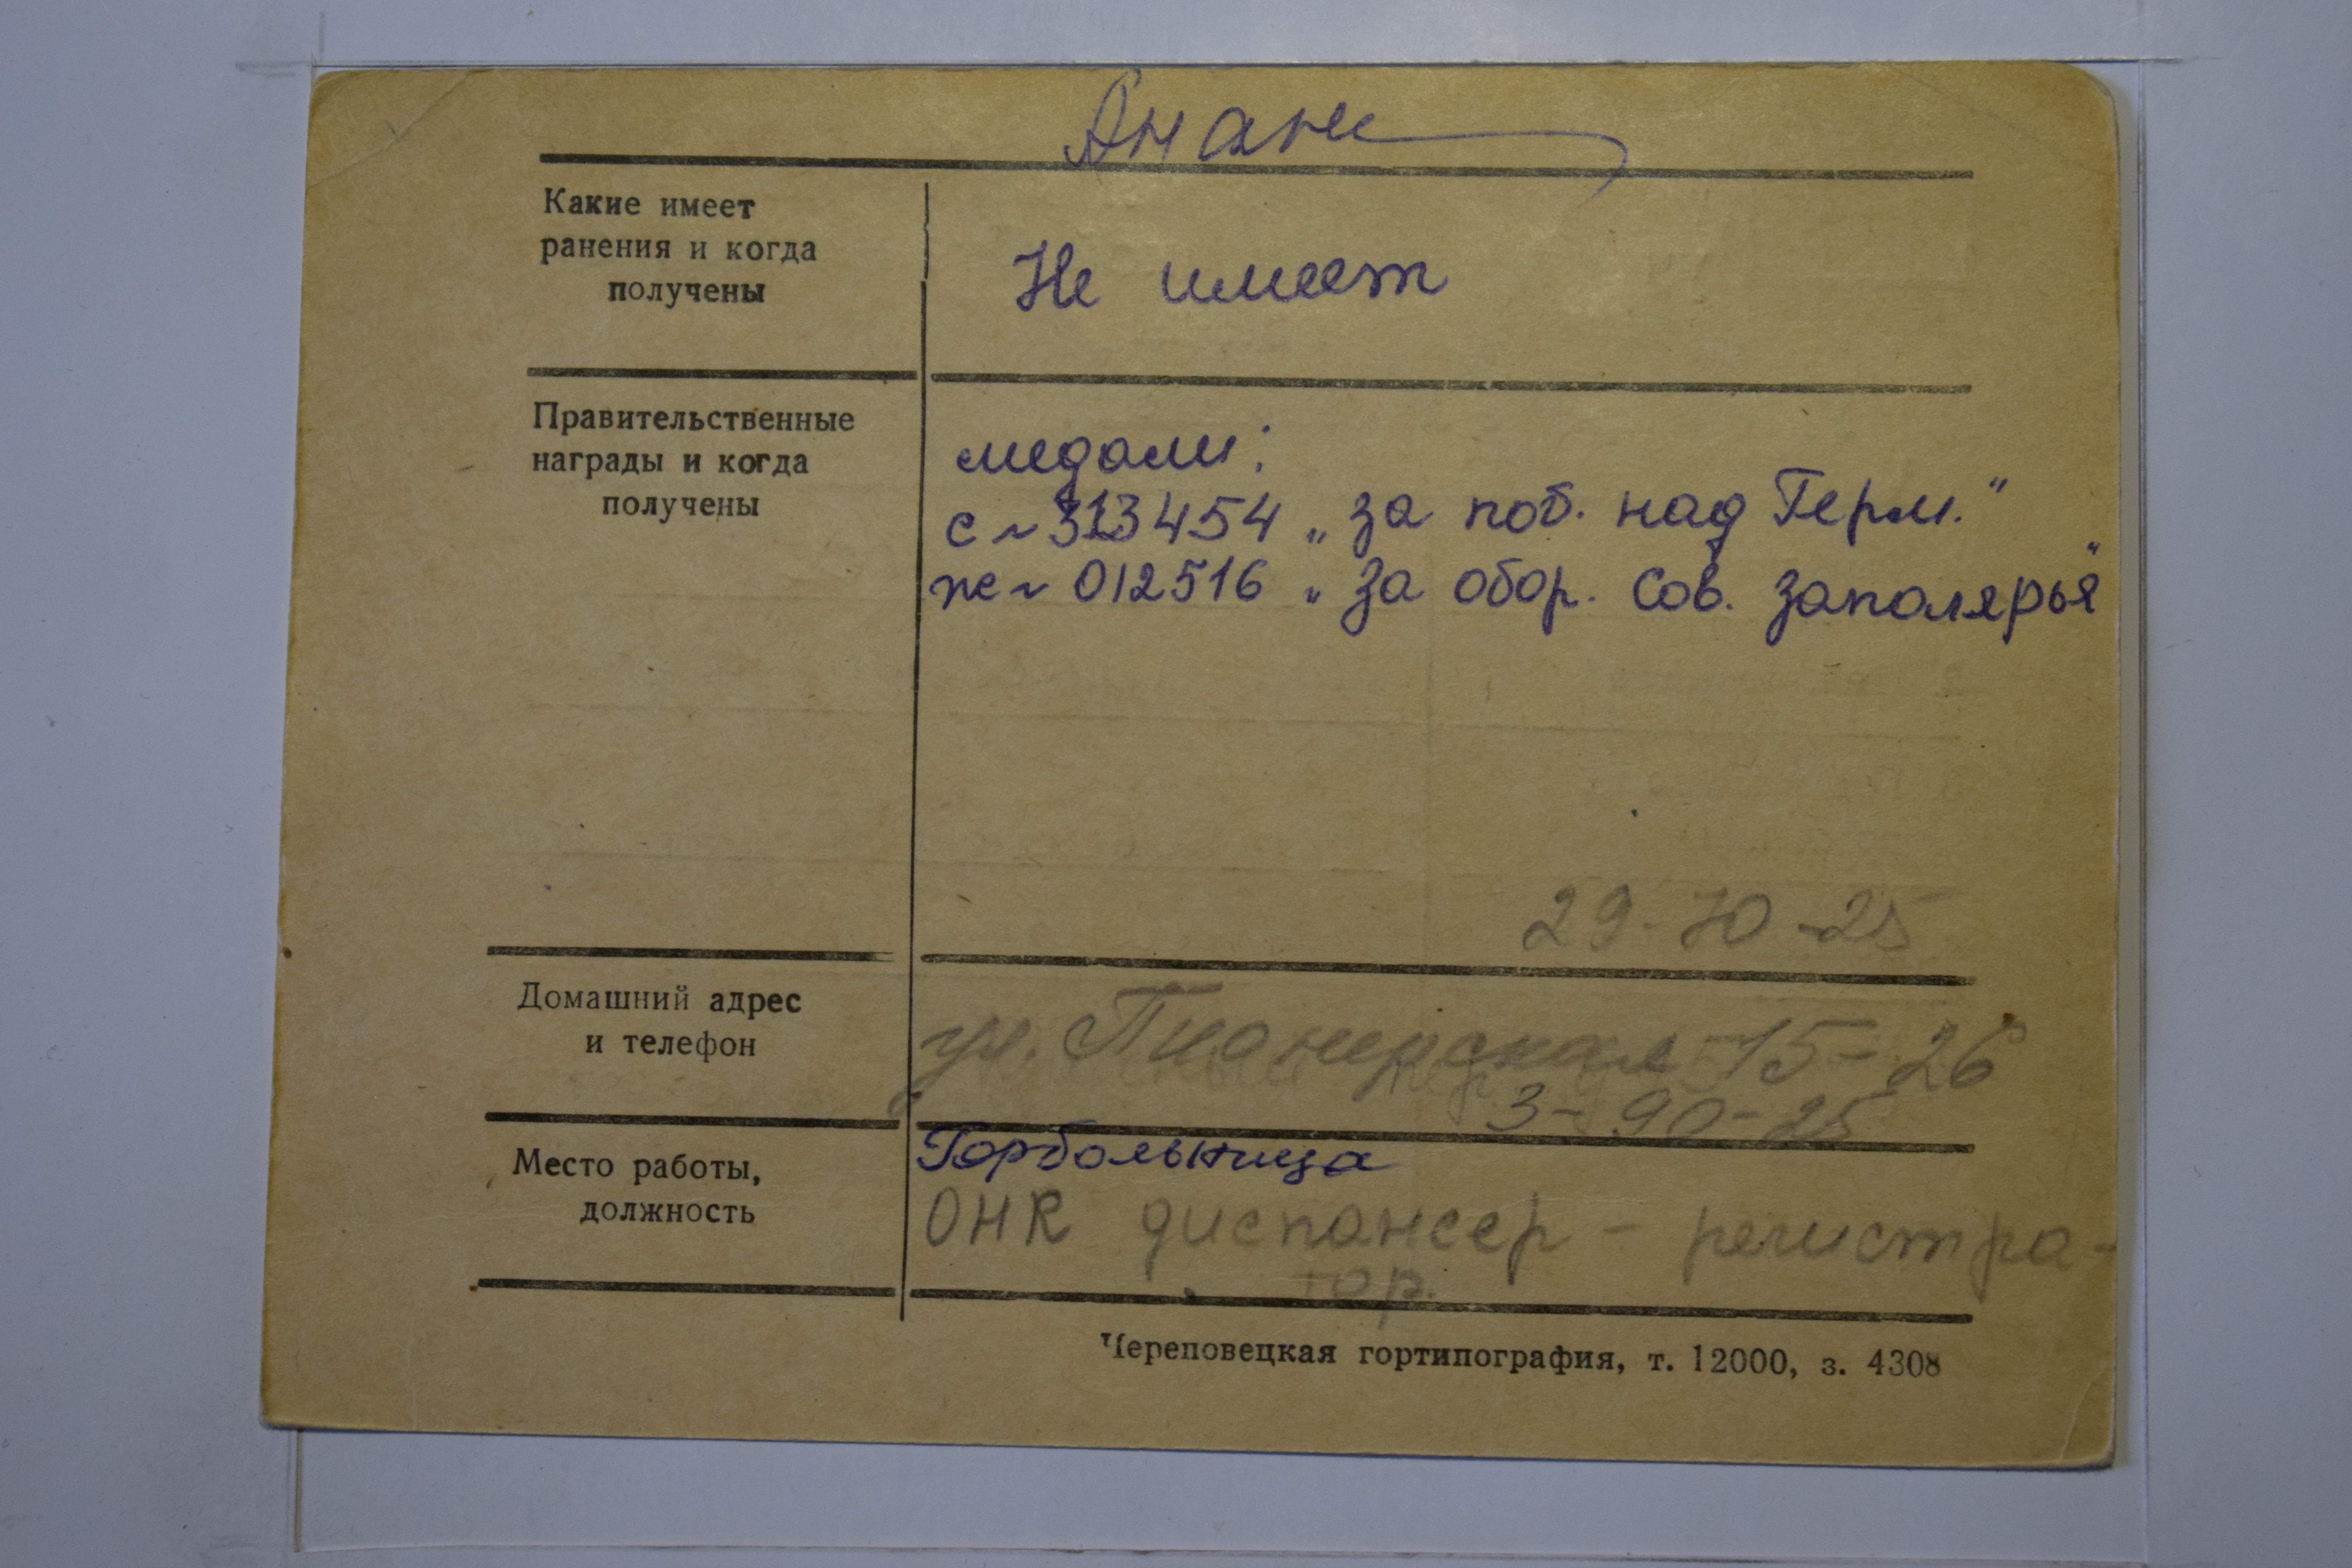 Анани
Какие имеет
ранения и когда
получены
Не имеет
Правительственные
награды и когда
получены
медали:
с ~ 313454 „за поб. над Герм."
ж ~ 012516 „за обор. Сов. Заполярья"
29-70-25
Домашний адрес
и телефон
ул. Пионерская 15-26
3-90-25
Место работы,
должность
Горбольница
ОНК диспансер - регистра-
тор.
Череповецкая гортипография, т. 12000, з. 4308